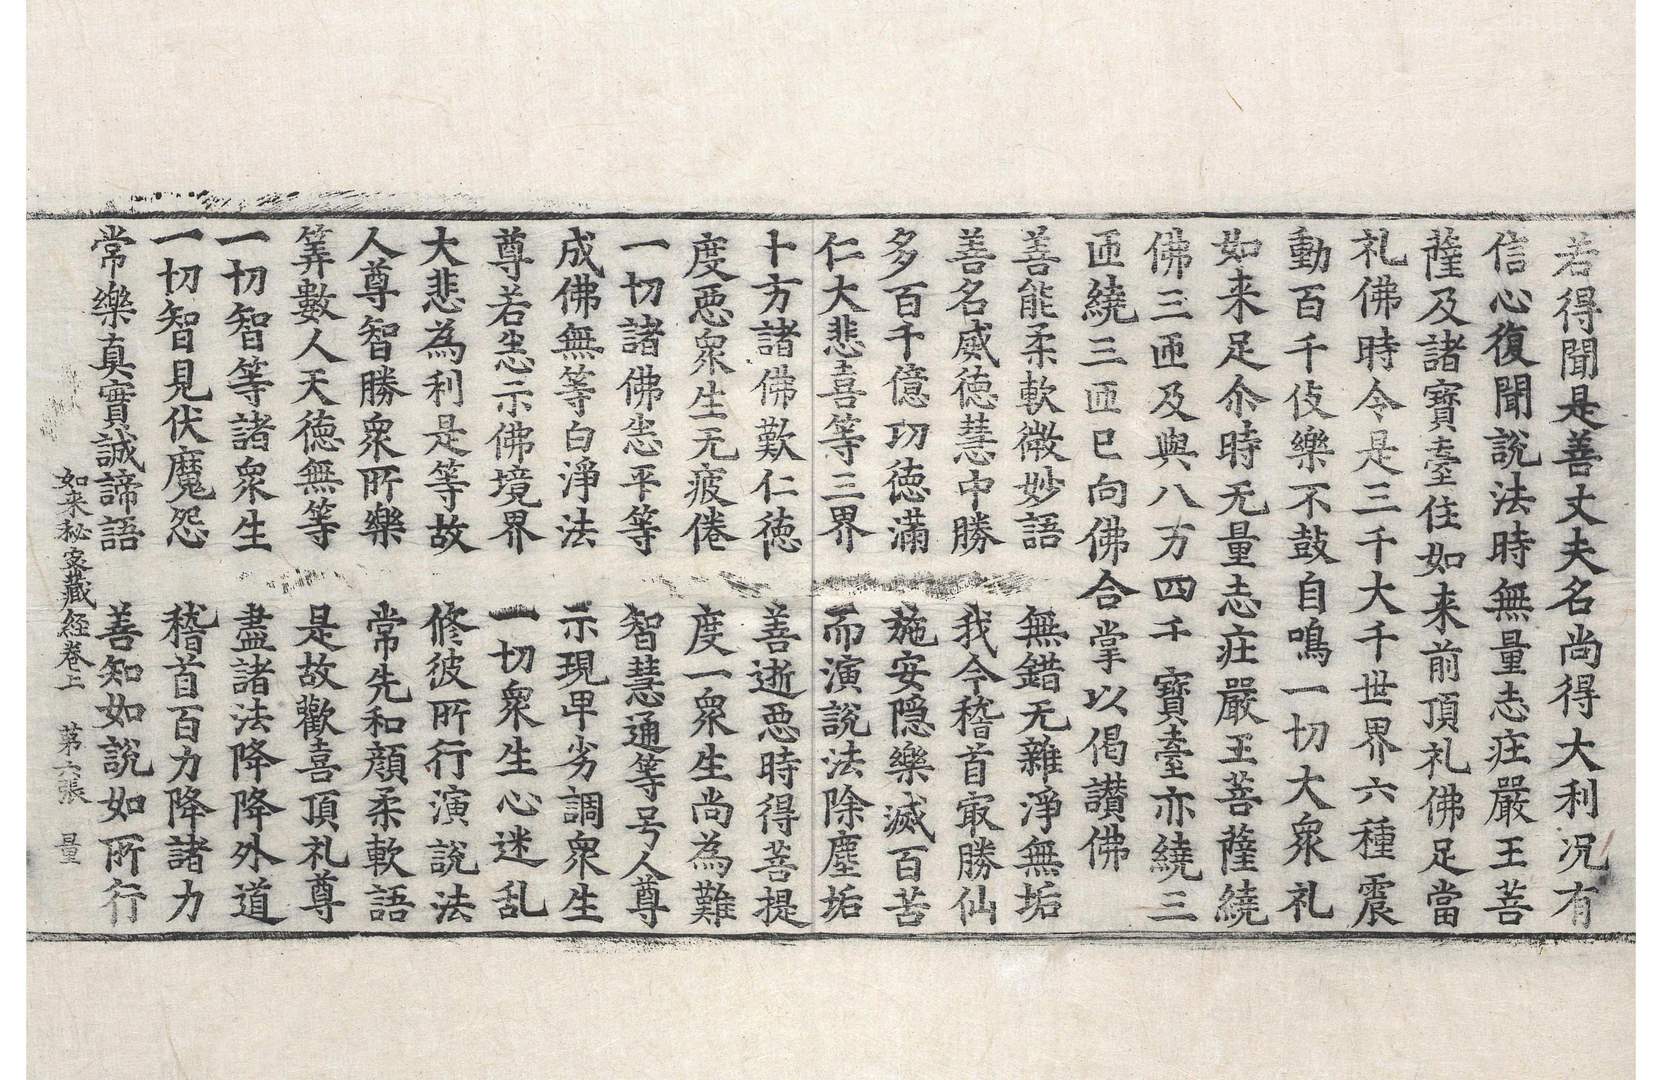 若得聞是善丈夫名尚得大利况有
信心復聞說法時無量志疘嚴王菩
薩及諸寶臺住如来前頂礼佛足當
礼佛時令是三千大千世界六種震
動百千伎樂不鼓自鳴一切大衆礼
如来足尒時无量志疘嚴王菩薩繞
佛三匝及與八万四千寶臺亦繞三
匝繞三匝已向佛合掌以偈讃佛
善能柔軟微妙語　無錯无雜淨無垢
善名威徳慧中勝　我今稽首㝡勝仙
多百千億功徳滿　施安隱樂滅百苦
仁大悲喜等三界　而演說法除塵垢
十方諸佛歎仁徳　善逝惡時得菩提
度惡衆生无疲倦　度一衆生尚為難
一切諸佛悉平等　智慧通等号人尊
成佛無等白淨法　示現卑劣調衆生
尊若悉示佛境界　一切衆生心迷乱
大悲為利是等故　修彼所行演說法
人尊智勝衆所樂　常先和顔柔軟語
筭數人天徳無等　是故歡喜頂礼尊
一切智等諸衆生　盡諸法降降外道
一切智見伏魔怨　稽首百力降諸力
常樂真實誠諦語　善知如說如所行
如来秘密藏經卷上　第六張　量